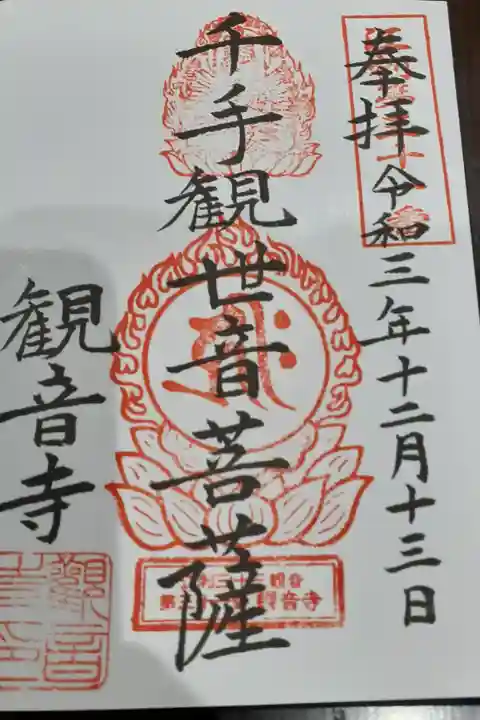 奉拝 令和三年十二月十三日
千手観世音菩薩
観音寺